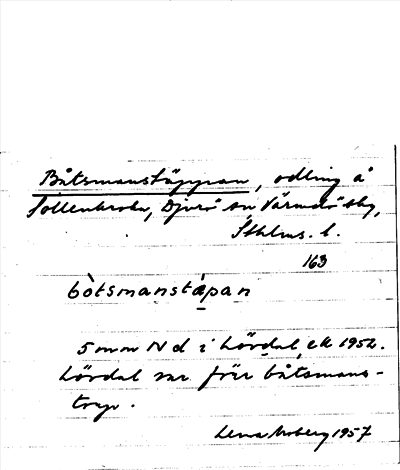 Båtsmanstäppan, odling å
Sollenkroka, Djurö sn Värmdö skg,
Sthlms. l.
163
bòtsmanstápan
5 mm N d i Lördal, ek 1952.
Lördal var förr båtsmans-
torp.
Lena Moberg 1957